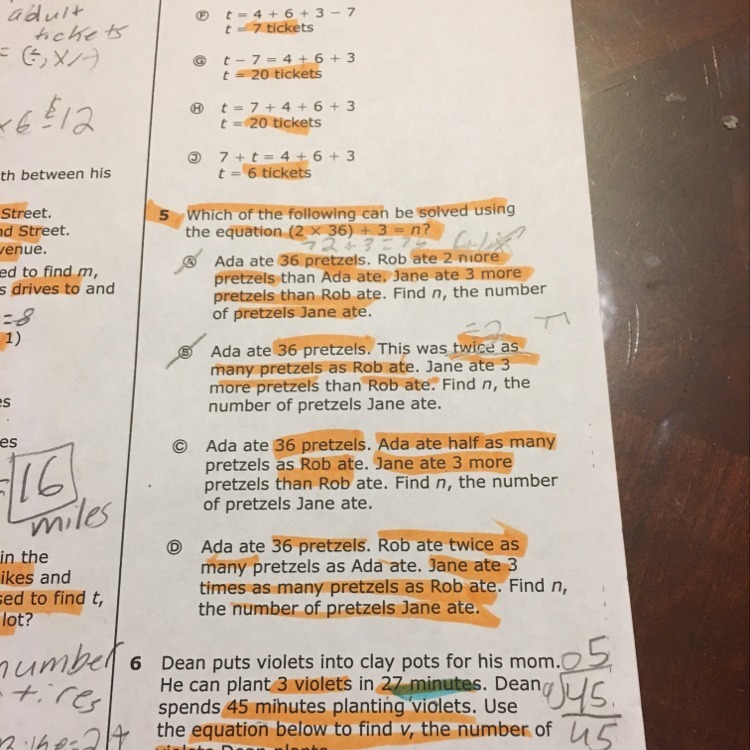 adult
tickets
Ⓕ t = 4 + 6 + 3 − 7
t = 7 tickets
Ⓖ t − 7 = 4 + 6 + 3
t = 20 tickets
Ⓗ t = 7 + 4 + 6 + 3
t = 20 tickets
Ⓙ 7 + t = 4 + 6 + 3
t = 6 tickets
th between his
Street.
nd Street.
venue.
ed to find m,
s drives to and
=8
1)
es
es
16
miles
in the
ikes and
sed to find t,
lot?
number
tires
5 Which of the following can be solved using
the equation (2 × 36) + 3 = n?
72+3=75
Ⓐ Ada ate 36 pretzels. Rob ate 2 more
pretzels than Ada ate. Jane ate 3 more
pretzels than Rob ate. Find n, the number
of pretzels Jane ate.
=2
Ⓑ Ada ate 36 pretzels. This was twice as
many pretzels as Rob ate. Jane ate 3
more pretzels than Rob ate. Find n, the
number of pretzels Jane ate.
Ⓒ Ada ate 36 pretzels. Ada ate half as many
pretzels as Rob ate. Jane ate 3 more
pretzels than Rob ate. Find n, the number
of pretzels Jane ate.
Ⓓ Ada ate 36 pretzels. Rob ate twice as
many pretzels as Ada ate. Jane ate 3
times as many pretzels as Rob ate. Find n,
the number of pretzels Jane ate.
6 Dean puts violets into clay pots for his mom.
He can plant 3 violets in 27 minutes. Dean
spends 45 minutes planting violets. Use
the equation below to find v, the number of
violets Dean plants
05
9)45
45